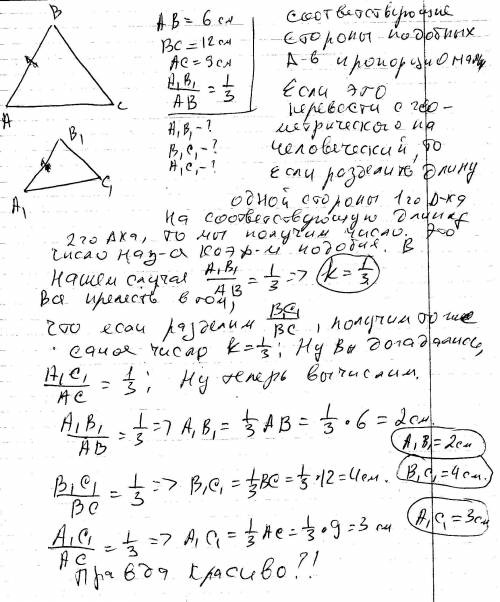 B
A
C
B₁
A₁
C₁
AB = 6 см
BC = 12 см
AC = 9 см
A₁B₁/AB = 1/3
A₁B₁ - ?
B₁C₁ - ?
A₁C₁ - ?
Соответствующие
стороны подобных
Δ-в пропорциональн
Если это
перевести с гео-
метрического на
человеческий, то
если разделить длину
одной стороны 1го Δ-ка
на соответствующую длину
2го Δка, то мы получим число. Это
число наз-а коэф-м подобия. В
нашем случае A₁B₁/AB = 1/3 => k = 1/3
Вся прелесть в том,
что если разделим B₁C₁/BC, получим то же
самое число k = 1/3; Ну Вы догадались,
A₁C₁/AC = 1/3; Ну теперь вычислим.
A₁B₁/AB = 1/3 => A₁B₁ = 1/3 AB = 1/3 · 6 = 2 см.
A₁B₁ = 2 см
B₁C₁/BC = 1/3 => B₁C₁ = 1/3 BC = 1/3 · 12 = 4 см.
B₁C₁ = 4 см.
A₁C₁/AC = 1/3 => A₁C₁ = 1/3 AC = 1/3 · 9 = 3 см
A₁C₁ = 3 см
Правда красиво?!